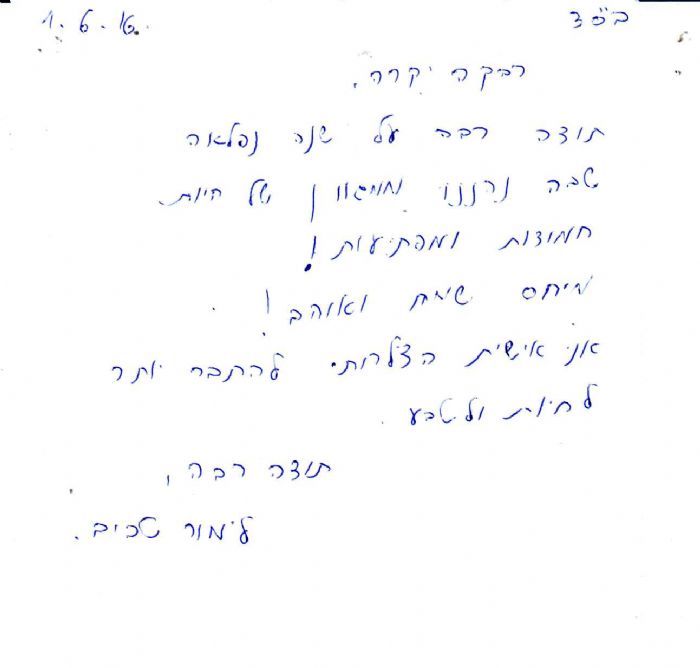 בס"ד 1.6.16.
רבקה יקרה,
תודה רבה על שנה נפלאה
שבה נהננו ממגוון של חיות
חמודות ומפתיעות!
מיחס שימח ואוהב!
אני אישית הצלחתי להתחבר יותר
לחיות ולטבע.
תודה רבה,
לימור טביב.